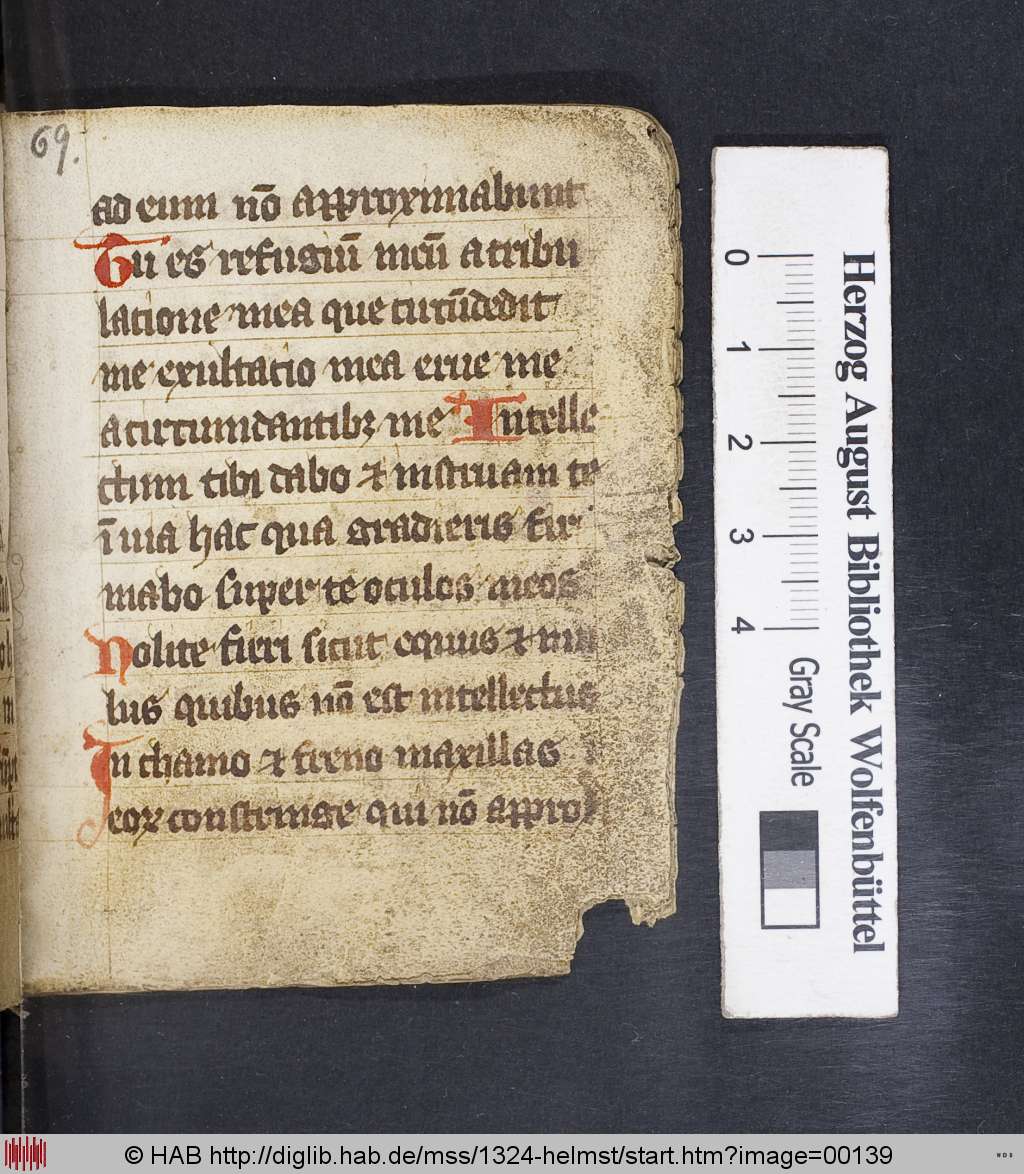 69.
ad eum nō approximabunt
Tu es refugiū meū a tribu
latione mea que circūdedit
me exultatio mea erue me
a circumdantibꝫ me Intelle
ctum tibi dabo ⁊ instruam te
ī uia hac qua gradieris fir
mabo super te oculos meos
Nolite fieri sicut equus ⁊ mu
lus quibus nō est intellectus
In chamo ⁊ freno maxillas
eoꝝ constringe qui nō approx
0 1 2 3 4
Gray Scale
Herzog August Bibliothek Wolfenbüttel
© HAB http://diglib.hab.de/mss/1324-helmst/start.htm?image=00139